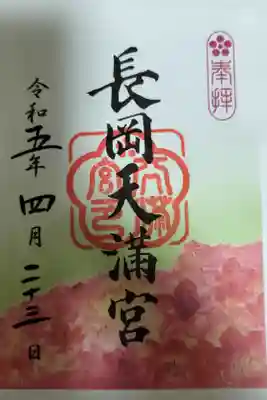 奉拝
長岡天満宮
令和五年 四月 二十三日